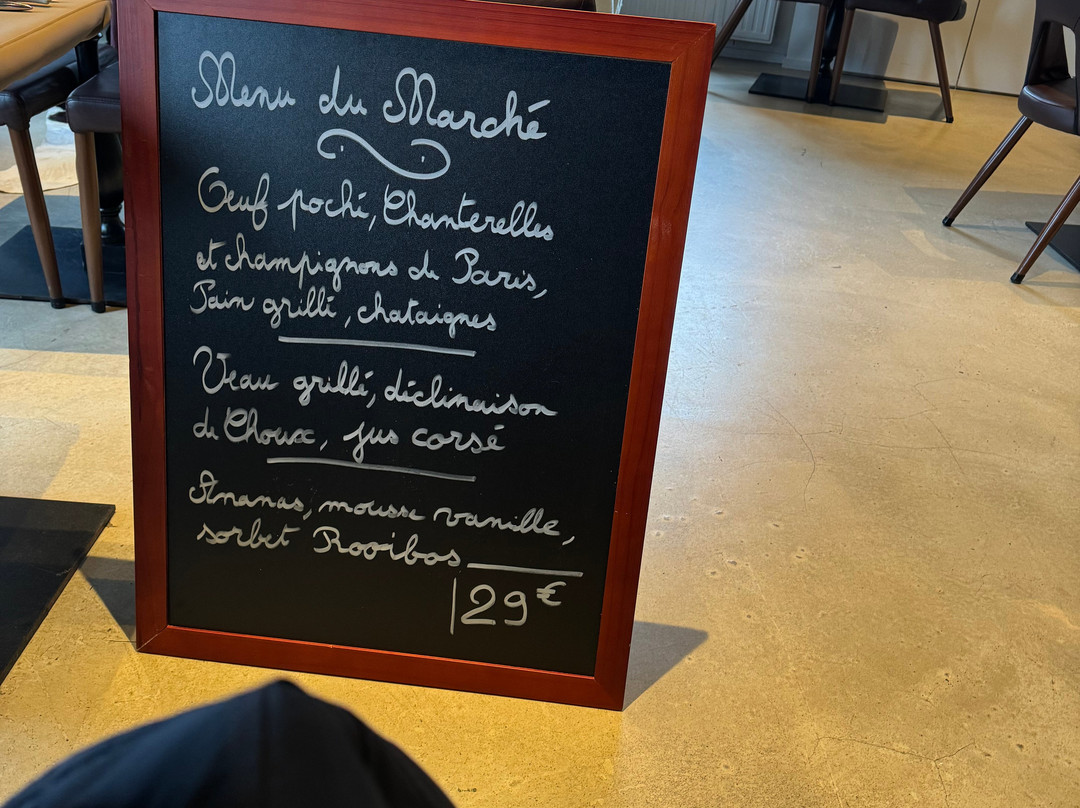 Menu du Marché
Oeuf poché, Chanterelles
et champignons de Paris,
Pain grillé, chataignes
Veau grillé, déclinaison
de Choux, jus corsé
Ananas, mousse vanille,
sorbet Rooibos
29€